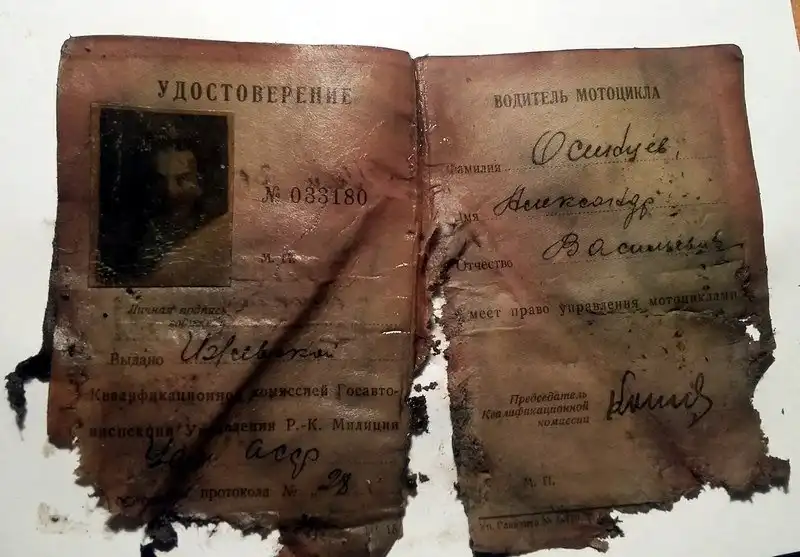 УДОСТОВЕРЕНИЕ
№ 033180
М. П.
Личная подпись
Выдано Ижевской
Квалификационной комиссией Госавто-
инспекции Управления Р.-К. Милиции
Удм АССР
протокола № 28
ВОДИТЕЛЬ МОТОЦИКЛА
Фамилия Осинцев
Имя Александр
Отчество Васильевич
имеет право управления мотоциклами
Председатель
Квалификационной
комиссии
М. П.